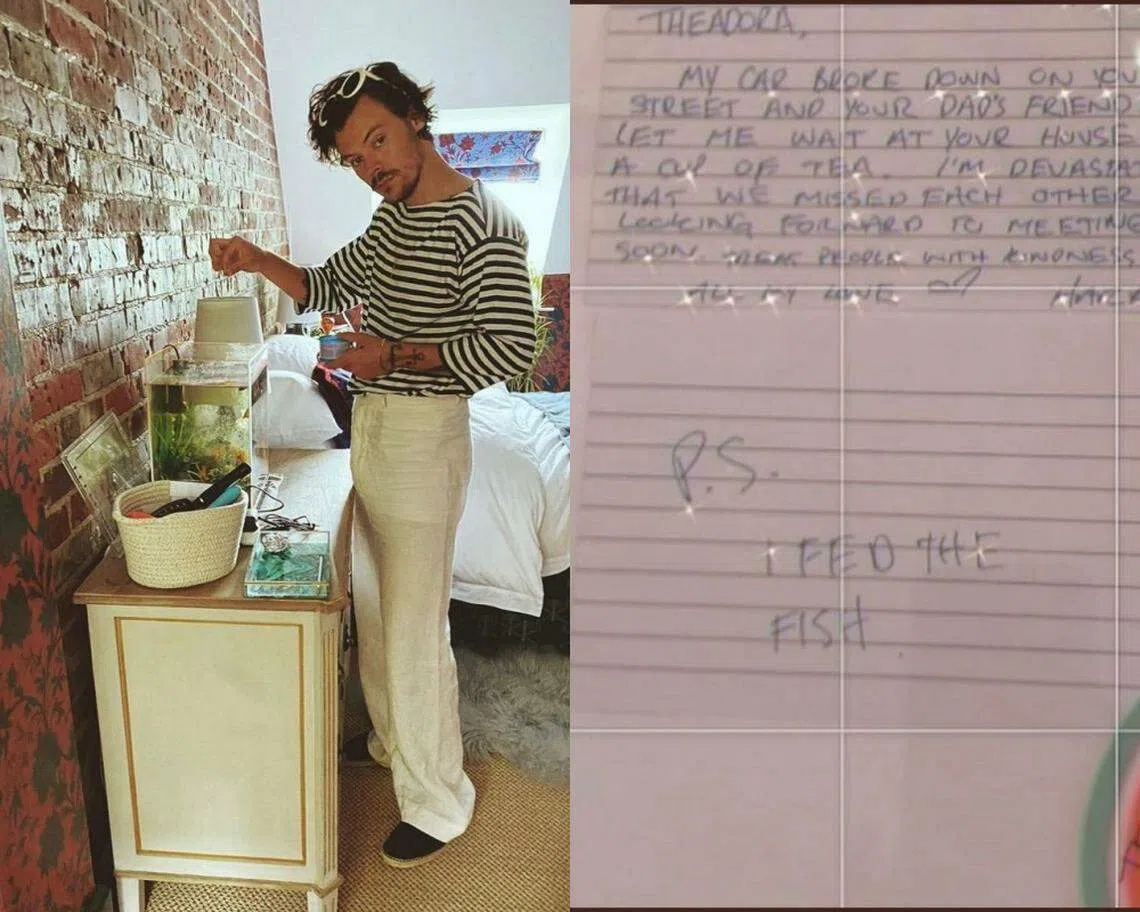 THEADORA,
MY CAR BROKE DOWN ON YOU
STREET AND YOUR DAD'S FRIEND
LET ME WAIT AT YOUR HOUSE
A CUP OF TEA. I'M DEVASTA
THAT WE MISSED EACH OTHER
LOOKING FORWARD TO MEETING
SOON. TREAT PEOPLE WITH KINDNESS
ALL MY LOVE HARR
P.S.
I FED THE
FISH.